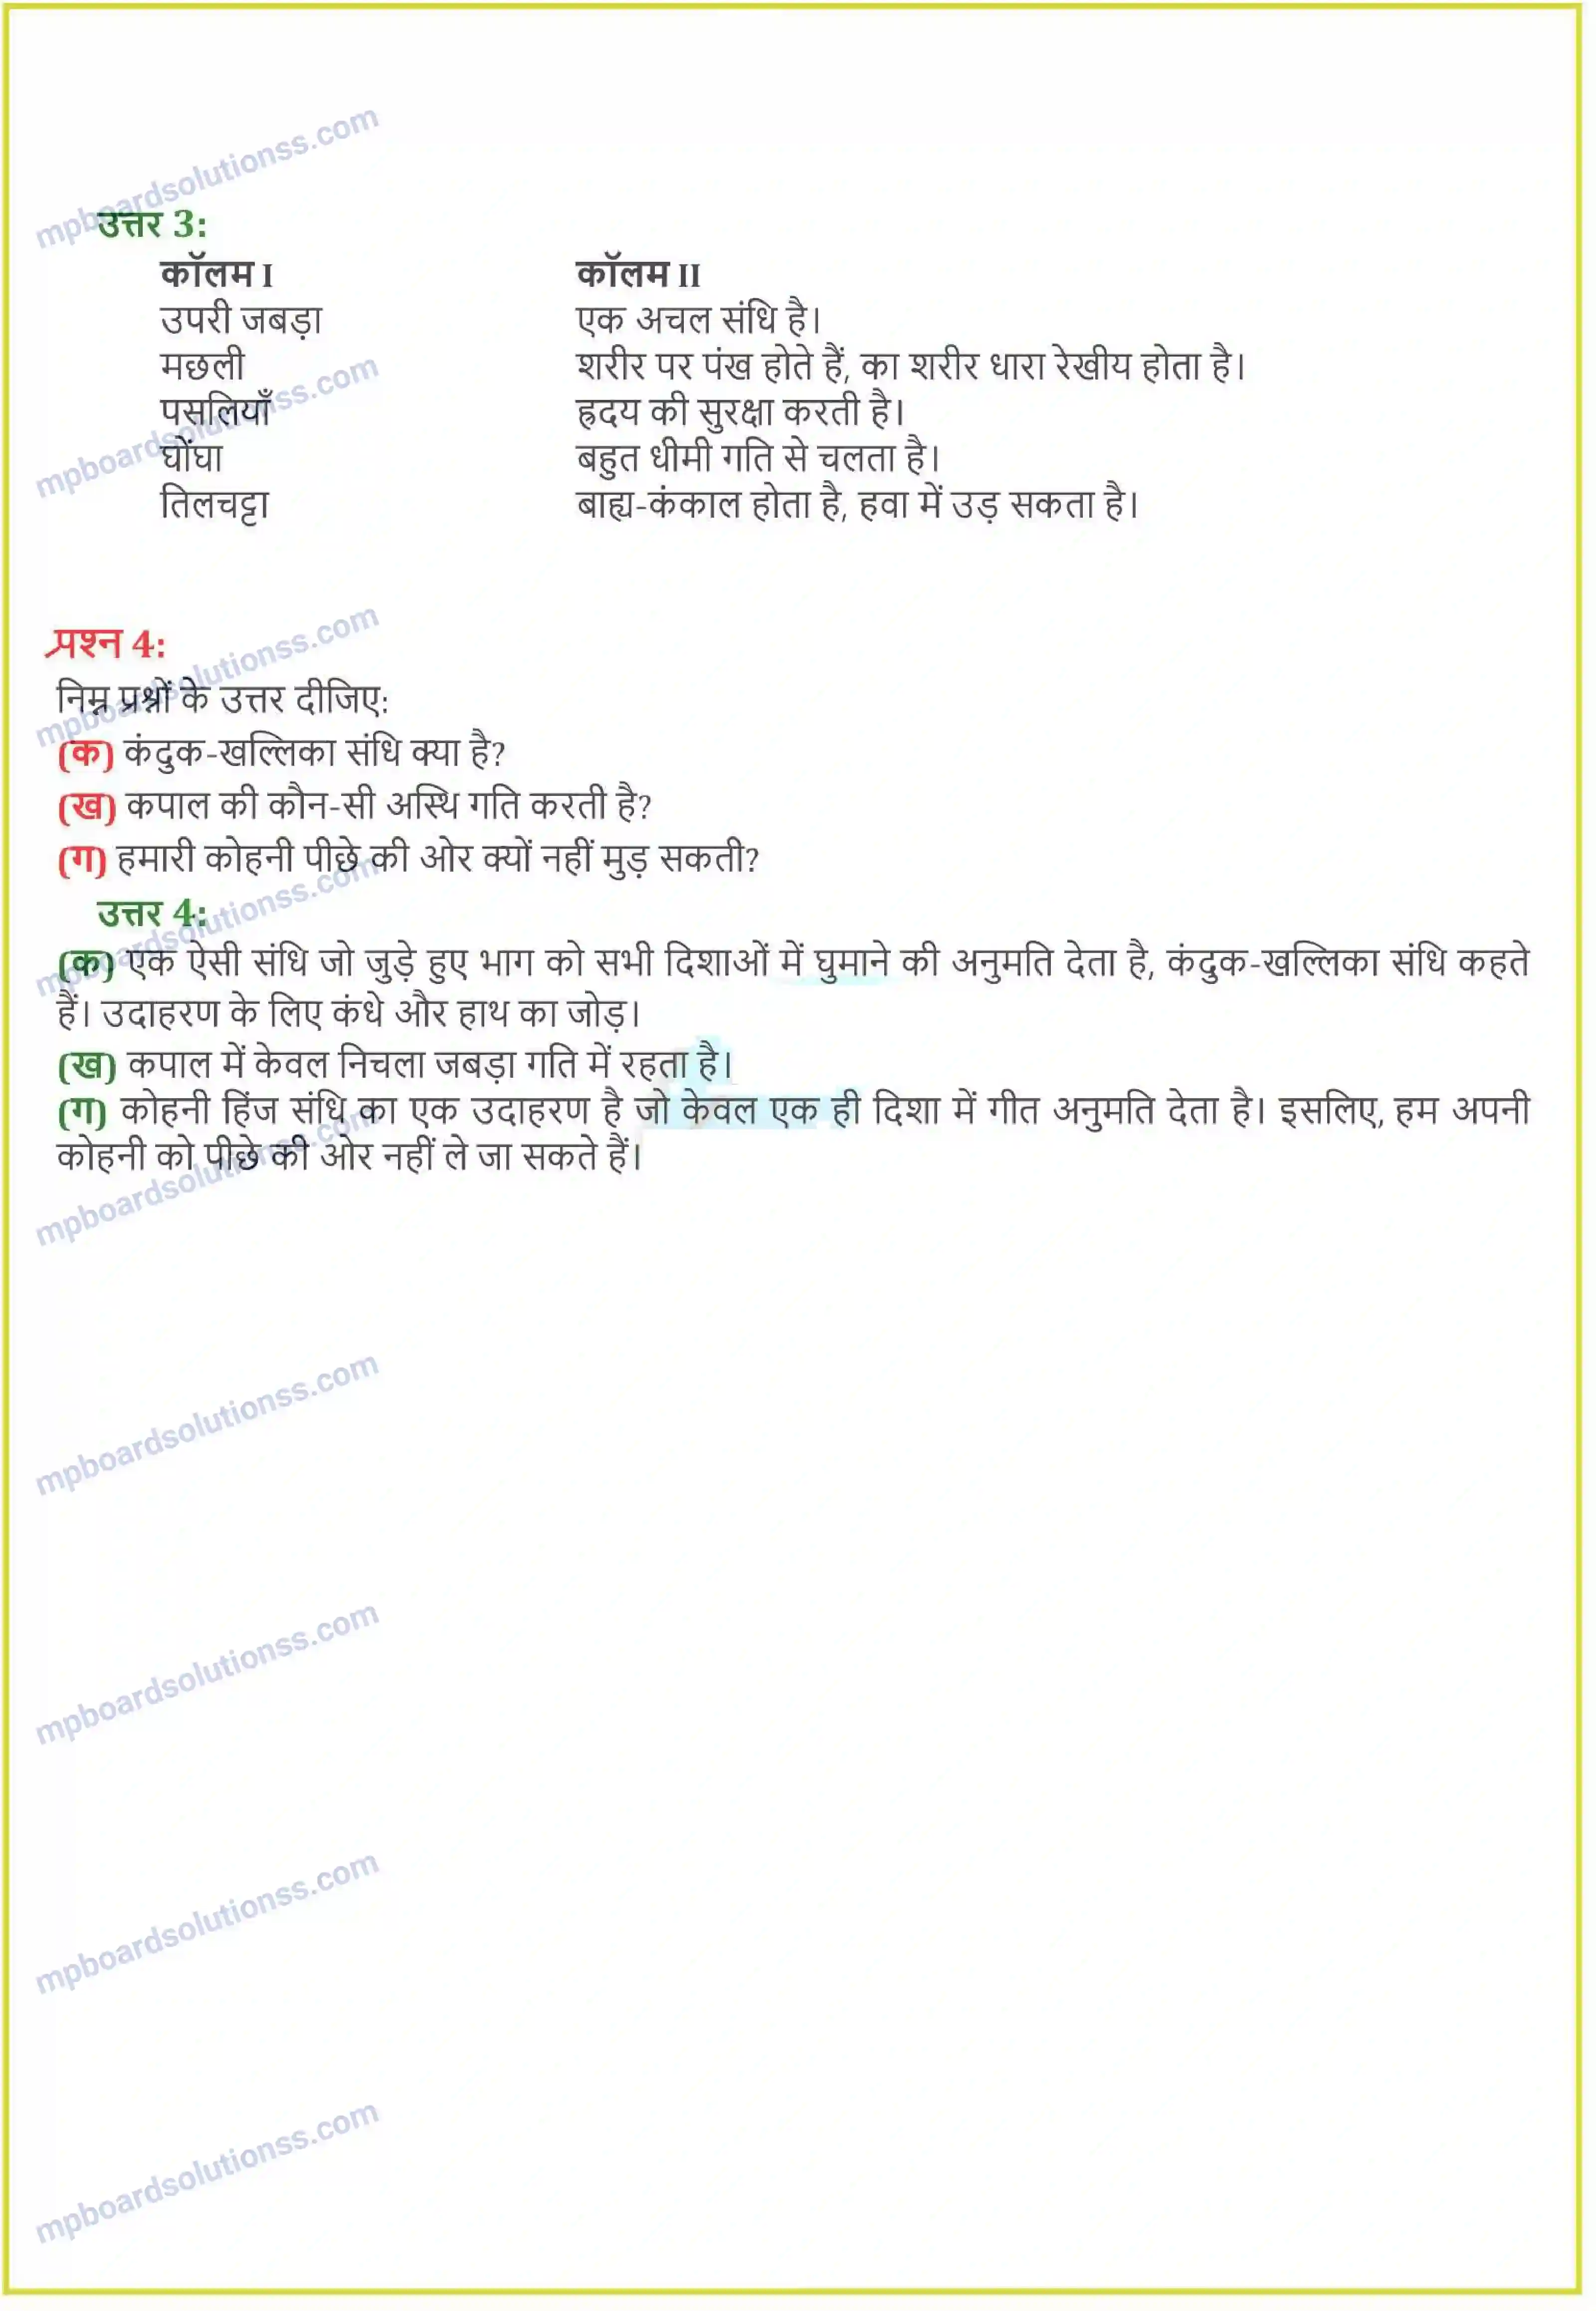 mpboardsolutionss.com
उत्तर 3:
कॉलम I कॉलम II
उपरी जबड़ा एक अचल संधि है।
मछली शरीर पर पंख होते हैं, का शरीर धारा रेखीय होता है।
mpboardsolutionss.com
पसलियाँ ह्रदय की सुरक्षा करती है।
घोंघा बहुत धीमी गति से चलता है।
तिलचट्टा बाह्य-कंकाल होता है, हवा में उड़ सकता है।
प्रश्न 4:
mpboardsolutionss.com
निम्न प्रश्नों के उत्तर दीजिए:
(क) कंदुक-खल्लिका संधि क्या है?
(ख) कपाल की कौन-सी अस्थि गति करती है?
(ग) हमारी कोहनी पीछे की ओर क्यों नहीं मुड़ सकती?
mpboardsolutionss.com
उत्तर 4:
(क) एक ऐसी संधि जो जुड़े हुए भाग को सभी दिशाओं में घुमाने की अनुमति देता है, कंदुक-खल्लिका संधि कहते
हैं। उदाहरण के लिए कंधे और हाथ का जोड़।
(ख) कपाल में केवल निचला जबड़ा गति में रहता है।
(ग) कोहनी हिंज संधि का एक उदाहरण है जो केवल एक ही दिशा में गीत अनुमति देता है। इसलिए, हम अपनी
कोहनी को पीछे की ओर नहीं ले जा सकते हैं।
mpboardsolutionss.com
mpboardsolutionss.com
mpboardsolutionss.com
mpboardsolutionss.com
mpboardsolutionss.com